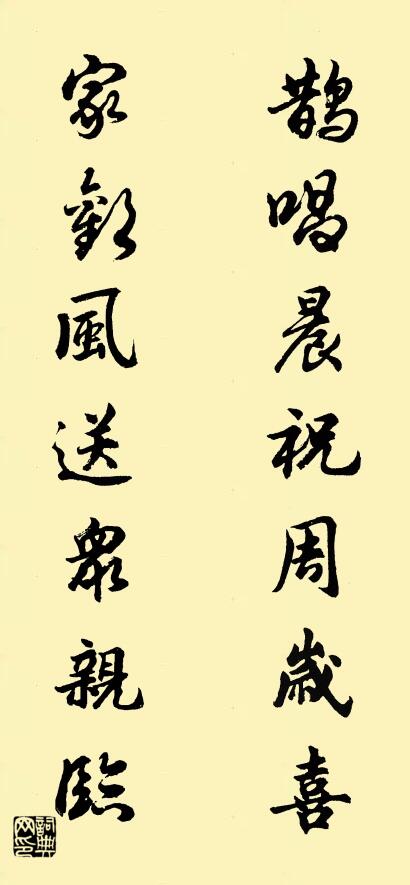 鵲唱晨祝周歲喜
家歡風送衆親臨
詞典网印